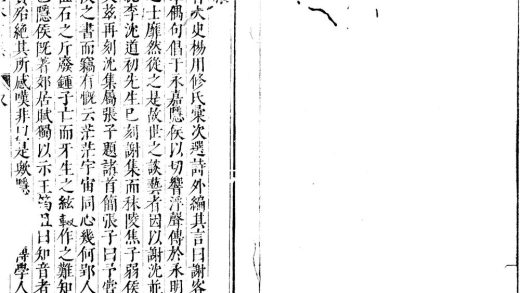 太史楊用修氏彙次選詩外編其言曰謝客
偶句倡于永嘉隱侯以切響浮聲傳於永明
士靡然從之是故世之談藝者因以謝沈並
李沈道初先生已刻謝集而秣陵焦子弱侯
茲再刻沈集屬張子題諸首簡張子曰予嘗
侯之書而竊有慨云茫茫宇宙同心幾何郢人
石之斤廢鍾子亡而牙生之絃輟作之難知
隱侯旣著郊居賦獨以示王筠且曰知音者
殆絕其所感嘆非是歟
學人